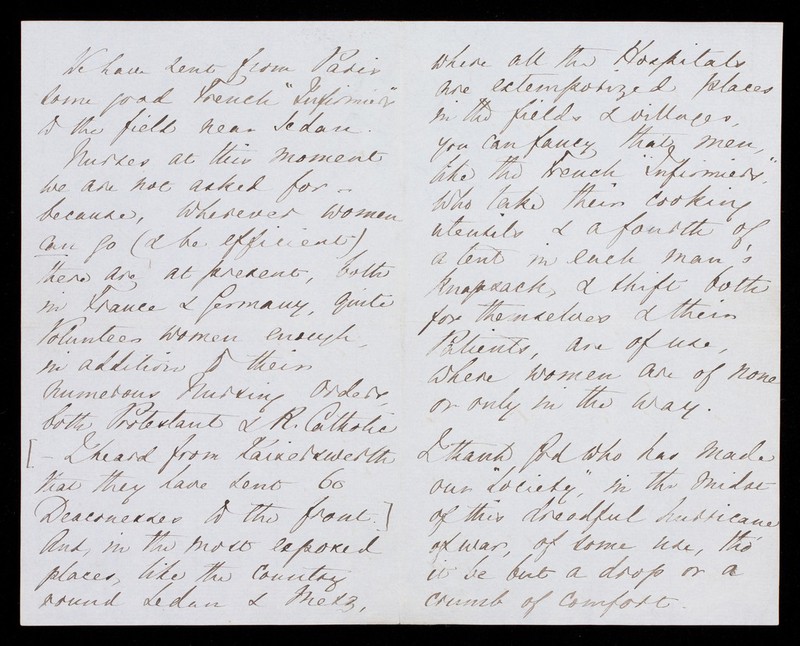 We have sent from Paris
some good French "Infirmiers"
to the field near Sedan.
Nurses at this moment
we are not asked for –
because, wherever women
can go (& be efficient)
there are, at present, both
in France & Germany, quite
Volunteer women enough,
in addition to their
numerous Nursing Orders,
both Protestant & R. Catholic
[– I heard from Kaiserswerth
that they have sent 60
Deaconesses to the front.]
And, in the most exposed
places, like the country
round Sedan & Metz,
where all the Hospitals
are extemporized places
in the fields & villages,
you can fancy that men,
like the French "Infirmiers",
who take their cooking
utensils & a fourth of
a tent in each man's
knapsack, & shift both
for themselves & their
Patients, are of use,
where women are of none
or only in the way.
I thank God who has made
our "Society," in the midst
of this dreadful hurricane
of war, of some use, tho'
it be but a drop or a
crumb of comfort.